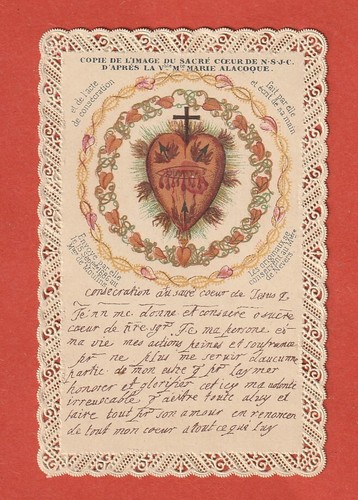 COPIE DE L'IMAGE DU SACRÉ CŒUR DE N-S-J-C.
D'APRÈS LA Vble Mte MARIE ALACOQUE.
et de l'acte
de consécration
fait par elle
et écrit de sa main
Envoyé par elle
de
consecration au sacre coeur de Jesus
Je nn me donne et consacre o sacre
coeur de nre sgr. Je ma persone et
ma vie mes actions peines et soufrances
pr ne plus me servir daucune
partie de mon estre q pr laymer
honorer et glorifier cet icy ma volonte
irreuocable q destre toute a luy et
faire tout pr son amour en renoncen
de tout mon coeur a tout ce qui luy